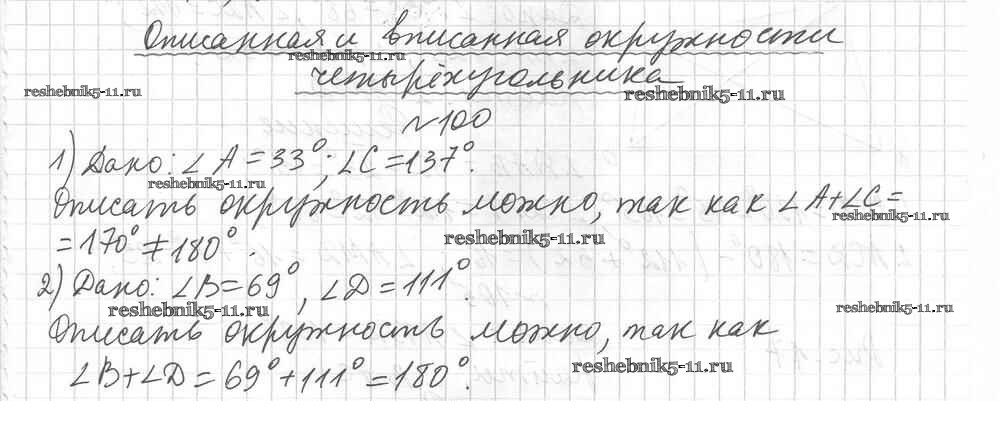 Описанная и вписанная окружности
reshebnik5-11.ru
четырёхугольника
reshebnik5-11.ru
reshebnik5-11.ru
№100
1) Дано: ∠A = 33°; ∠C = 137°.
reshebnik5-11.ru
Описать окружность можно, так как ∠A+∠C =
reshebnik5-11.ru
= 170° ≠ 180°.
reshebnik5-11.ru
2) Дано: ∠B = 69°, ∠D = 111°.
reshebnik5-11.ru
reshebnik5-11.ru
Описать окружность можно, так как
reshebnik5-11.ru
∠B+∠D = 69° + 111° = 180°.